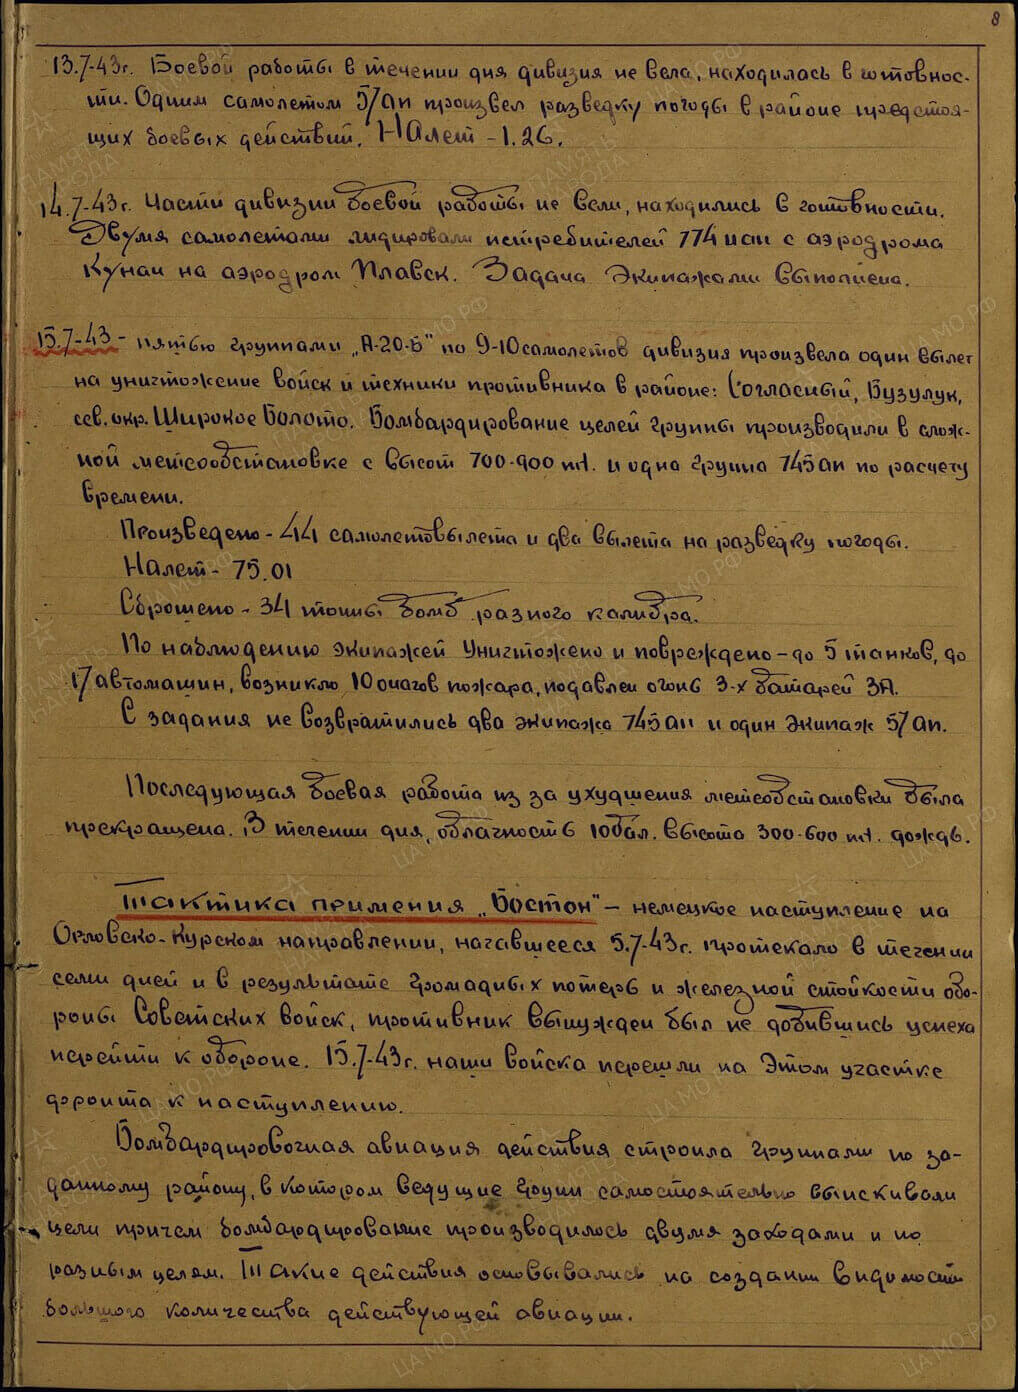 8
13.7-43г. Боевой работы в течении дня дивизия не вела, находилась в готовнос-
ти. Одним самолетом 57 ап произвел разведку погоды в районе предстоя-
щих боевых действий. Налет - 1.26.
14.7-43г. Части дивизии боевой работы не вели, находились в готовности.
Двумя самолетами лидировали истребителей 774 иап с аэродрома
Кунач на аэродром Плавск. Задача экипажами выполнена.
15.7-43 - пятью группами „А-20-Б" по 9-10 самолетов дивизия произвела один вылет
на уничтожение войск и техники противника в районе: Согласный, Бузулук,
сев. окр. Широкое Болото. Бомбардирование целей группы производили в слож-
ной метеообстановке с высот 700-900 мт. и одна группа 745 ап по расчету
времени.
Произведено - 44 самолетовылета и два вылета на разведку погоды.
Налет - 75.01
Сброшено - 34 тонны бомб разного калибра.
По наблюдению экипажей уничтожено и повреждено - до 5 танков, до
17 автомашин, возникло 10 очагов пожара, подавлен огонь 3-х батарей ЗА.
С задания не возвратились два экипажа 745 ап и один экипаж 57 ап.
Последующая боевая работа из за ухудшения метеобстановки была
прекращена. В течении дня, облачность 10 бал. высота 300-600 мт. дождь.
Тактика примения „Бостон" - немецкое наступление на
Орловско-Курском направлении, начавшееся 5.7-43г. протекало в течении
семи дней и в результате громадных потерь и железной стойкости обо-
роны Советских войск, противник вынужден был не добившись успеха
перейти к обороне. 15.7-43г. наши войска перешли на этом участке
фронта к наступлению.
Бомбардировочная авиация действия строила группами по за-
данному району, в котором ведущие групп самостоятельно выискивали
цели причем бомбардирование производилось двумя заходами и по
разным целям. Такие действия основывались на создании видимости
большого количества действующей авиации.